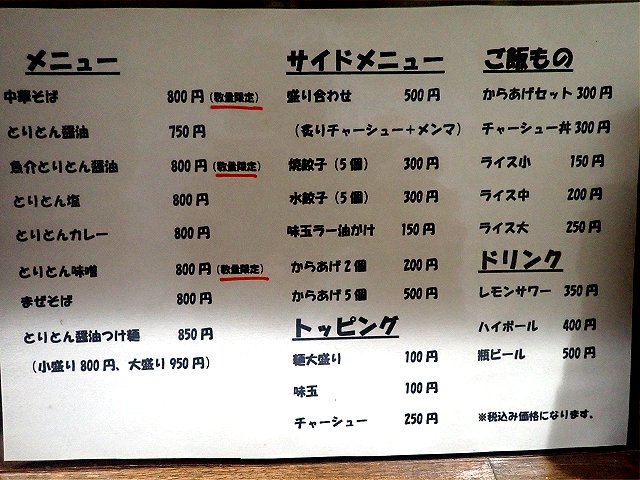 メニュー
中華そば 800円（数量限定）
とりとん醤油 750円
魚介とりとん醤油 800円（数量限定）
とりとん塩 800円
とりとんカレー 800円
とりとん味噌 800円（数量限定）
まぜそば 800円
とりとん醤油つけ麺 850円
（小盛り800円、大盛り950円）
サイドメニュー
盛り合わせ 500円
（炙りチャーシュー＋メンマ）
焼餃子（5個） 300円
水餃子（5個） 300円
味玉ラー油がけ 150円
からあげ2個 200円
からあげ5個 500円
トッピング
麺大盛り 100円
味玉 100円
チャーシュー 250円
ご飯もの
からあげセット 300円
チャーシュー丼 300円
ライス小 150円
ライス中 200円
ライス大 250円
ドリンク
レモンサワー 350円
ハイボール 400円
瓶ビール 500円
※税込み価格になります。